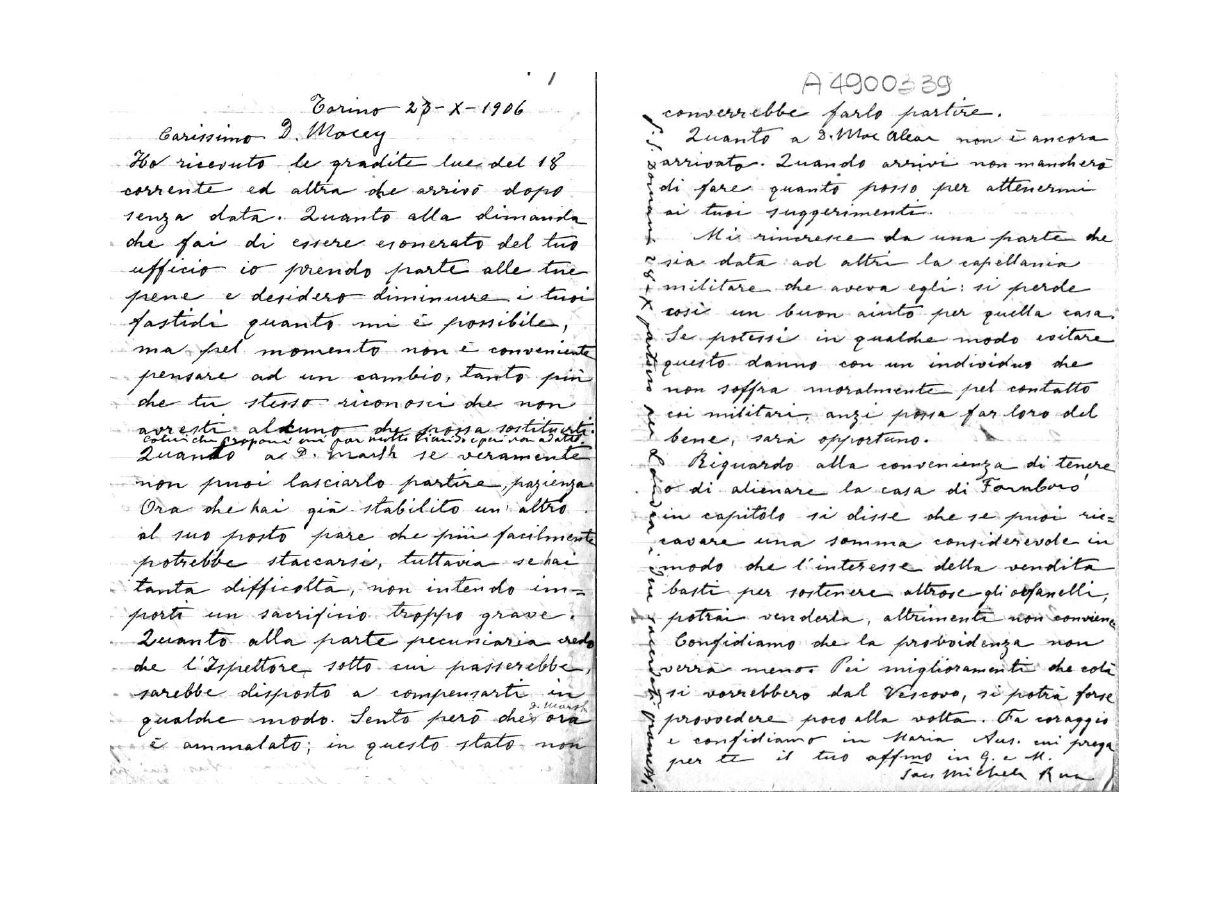 Torino 23-X-1906
Carissimo D. Macey
Ho ricevuto le gradite tue del 18
corrente ed altra che arrivò dopo
senza data. Quanto alla dimanda
che fai di essere esonerato del tuo
ufficio io prendo parte alle tue
pene e desidero diminuire i tuoi
fastidi quanto mi è possibile,
ma pel momento non è conveniente
pensare ad un cambio, tanto più
che tu stesso riconosci che non
avresti alcuno che possa sostituirti.
colui che proponi mi par molto
Quando a D. Marsh se veramente
non puoi lasciarlo partire, pazienza
Ora che hai già stabilito un altro
al suo posto pare che più facilmente
potrebbe staccarsi, tuttavia se hai
tanta difficoltà, non intendo im=
porti un sacrificio troppo grave.
Quanto alla parte pecuniaria credo
che l'Ispettore sotto cui passerebbe,
sarebbe disposto a compensarti in
qualche modo. Sento però che D. Marsh ora
è ammalato; in questo stato non
A4900339
converrebbe farlo partire.
Quanto a D. Mac Alear non è ancora
arrivato. Quando arrivi non mancherò
di fare quanto posso per attenermi
ai tuoi suggerimenti.
Mi rincresce da una parte che
sia data ad altri la capellania
militare che aveva egli: si perde
così un buon aiuto per quella casa.
Se potessi in qualche modo evitare
questo danno con un individuo che
non soffra moralmente pel contatto
coi militari, anzi possa far loro del
bene, sarà opportuno.
Riguardo alla convenienza di tenere
o di alienare la casa di Farnboró
in capitolo si disse che se puoi ric=
cavare una somma considerevole in
modo che l'interesse della vendita
basti per sostenere altrove gli orfanelli,
potrai venderla, altrimenti non conviene
Confidiamo che la provvidenza non
verrà meno. Pei miglioramenti che colà
si vorrebbero dal Vescovo, si potrà forse
provvedere poco alla volta. Fa coraggio
e confidiamo in Maria Aus. cui prega
per te il tuo affmo in G. e M.
Sac Michele Rua
P.S. Domani 28-X partono per Londra i due sacerdoti promessi.